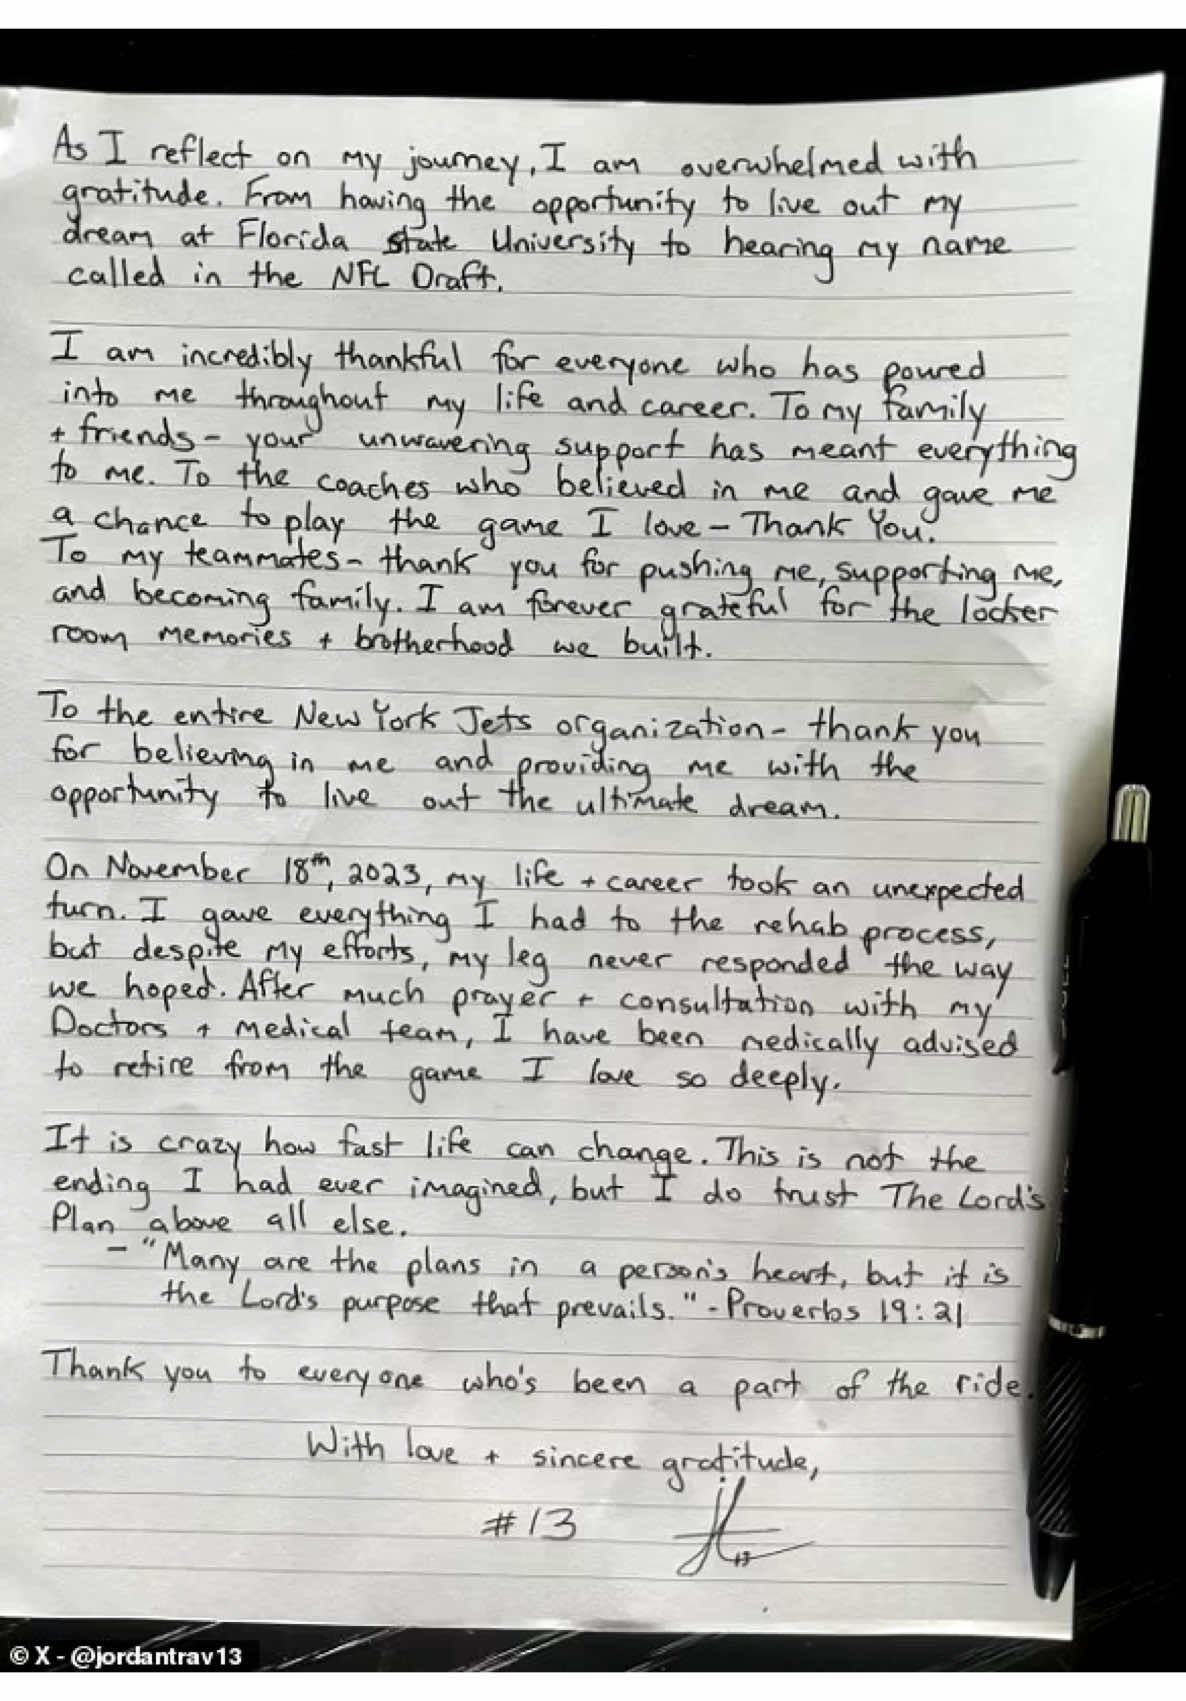 As I reflect on my journey, I am overwhelmed with
gratitude. From having the opportunity to live out my
dream at Florida State University to hearing my name
called in the NFL Draft.
I am incredibly thankful for everyone who has poured
into me throughout my life and career. To my family
+ friends - your unwavering support has meant everything
to me. To the coaches who believed in me and gave me
a chance to play the game I love - Thank You.
To my teammates - thank you for pushing me, supporting me,
and becoming family. I am forever grateful for the locker
room memories + brotherhood we built.
To the entire New York Jets organization - thank you
for believing in me and providing me with the
opportunity to live out the ultimate dream.
On November 18th, 2023, my life + career took an unexpected
turn. I gave everything I had to the rehab process,
but despite my efforts, my leg never responded the way
we hoped. After much prayer + consultation with my
Doctors + medical team, I have been medically advised
to retire from the game I love so deeply.
It is crazy how fast life can change. This is not the
ending I had ever imagined, but I do trust The Lord's
Plan above all else.
- "Many are the plans in a person's heart, but it is
the Lord's purpose that prevails." - Proverbs 19:21
Thank you to everyone who's been a part of the ride.
With love + sincere gratitude,
#13
© X - @jordantrav13